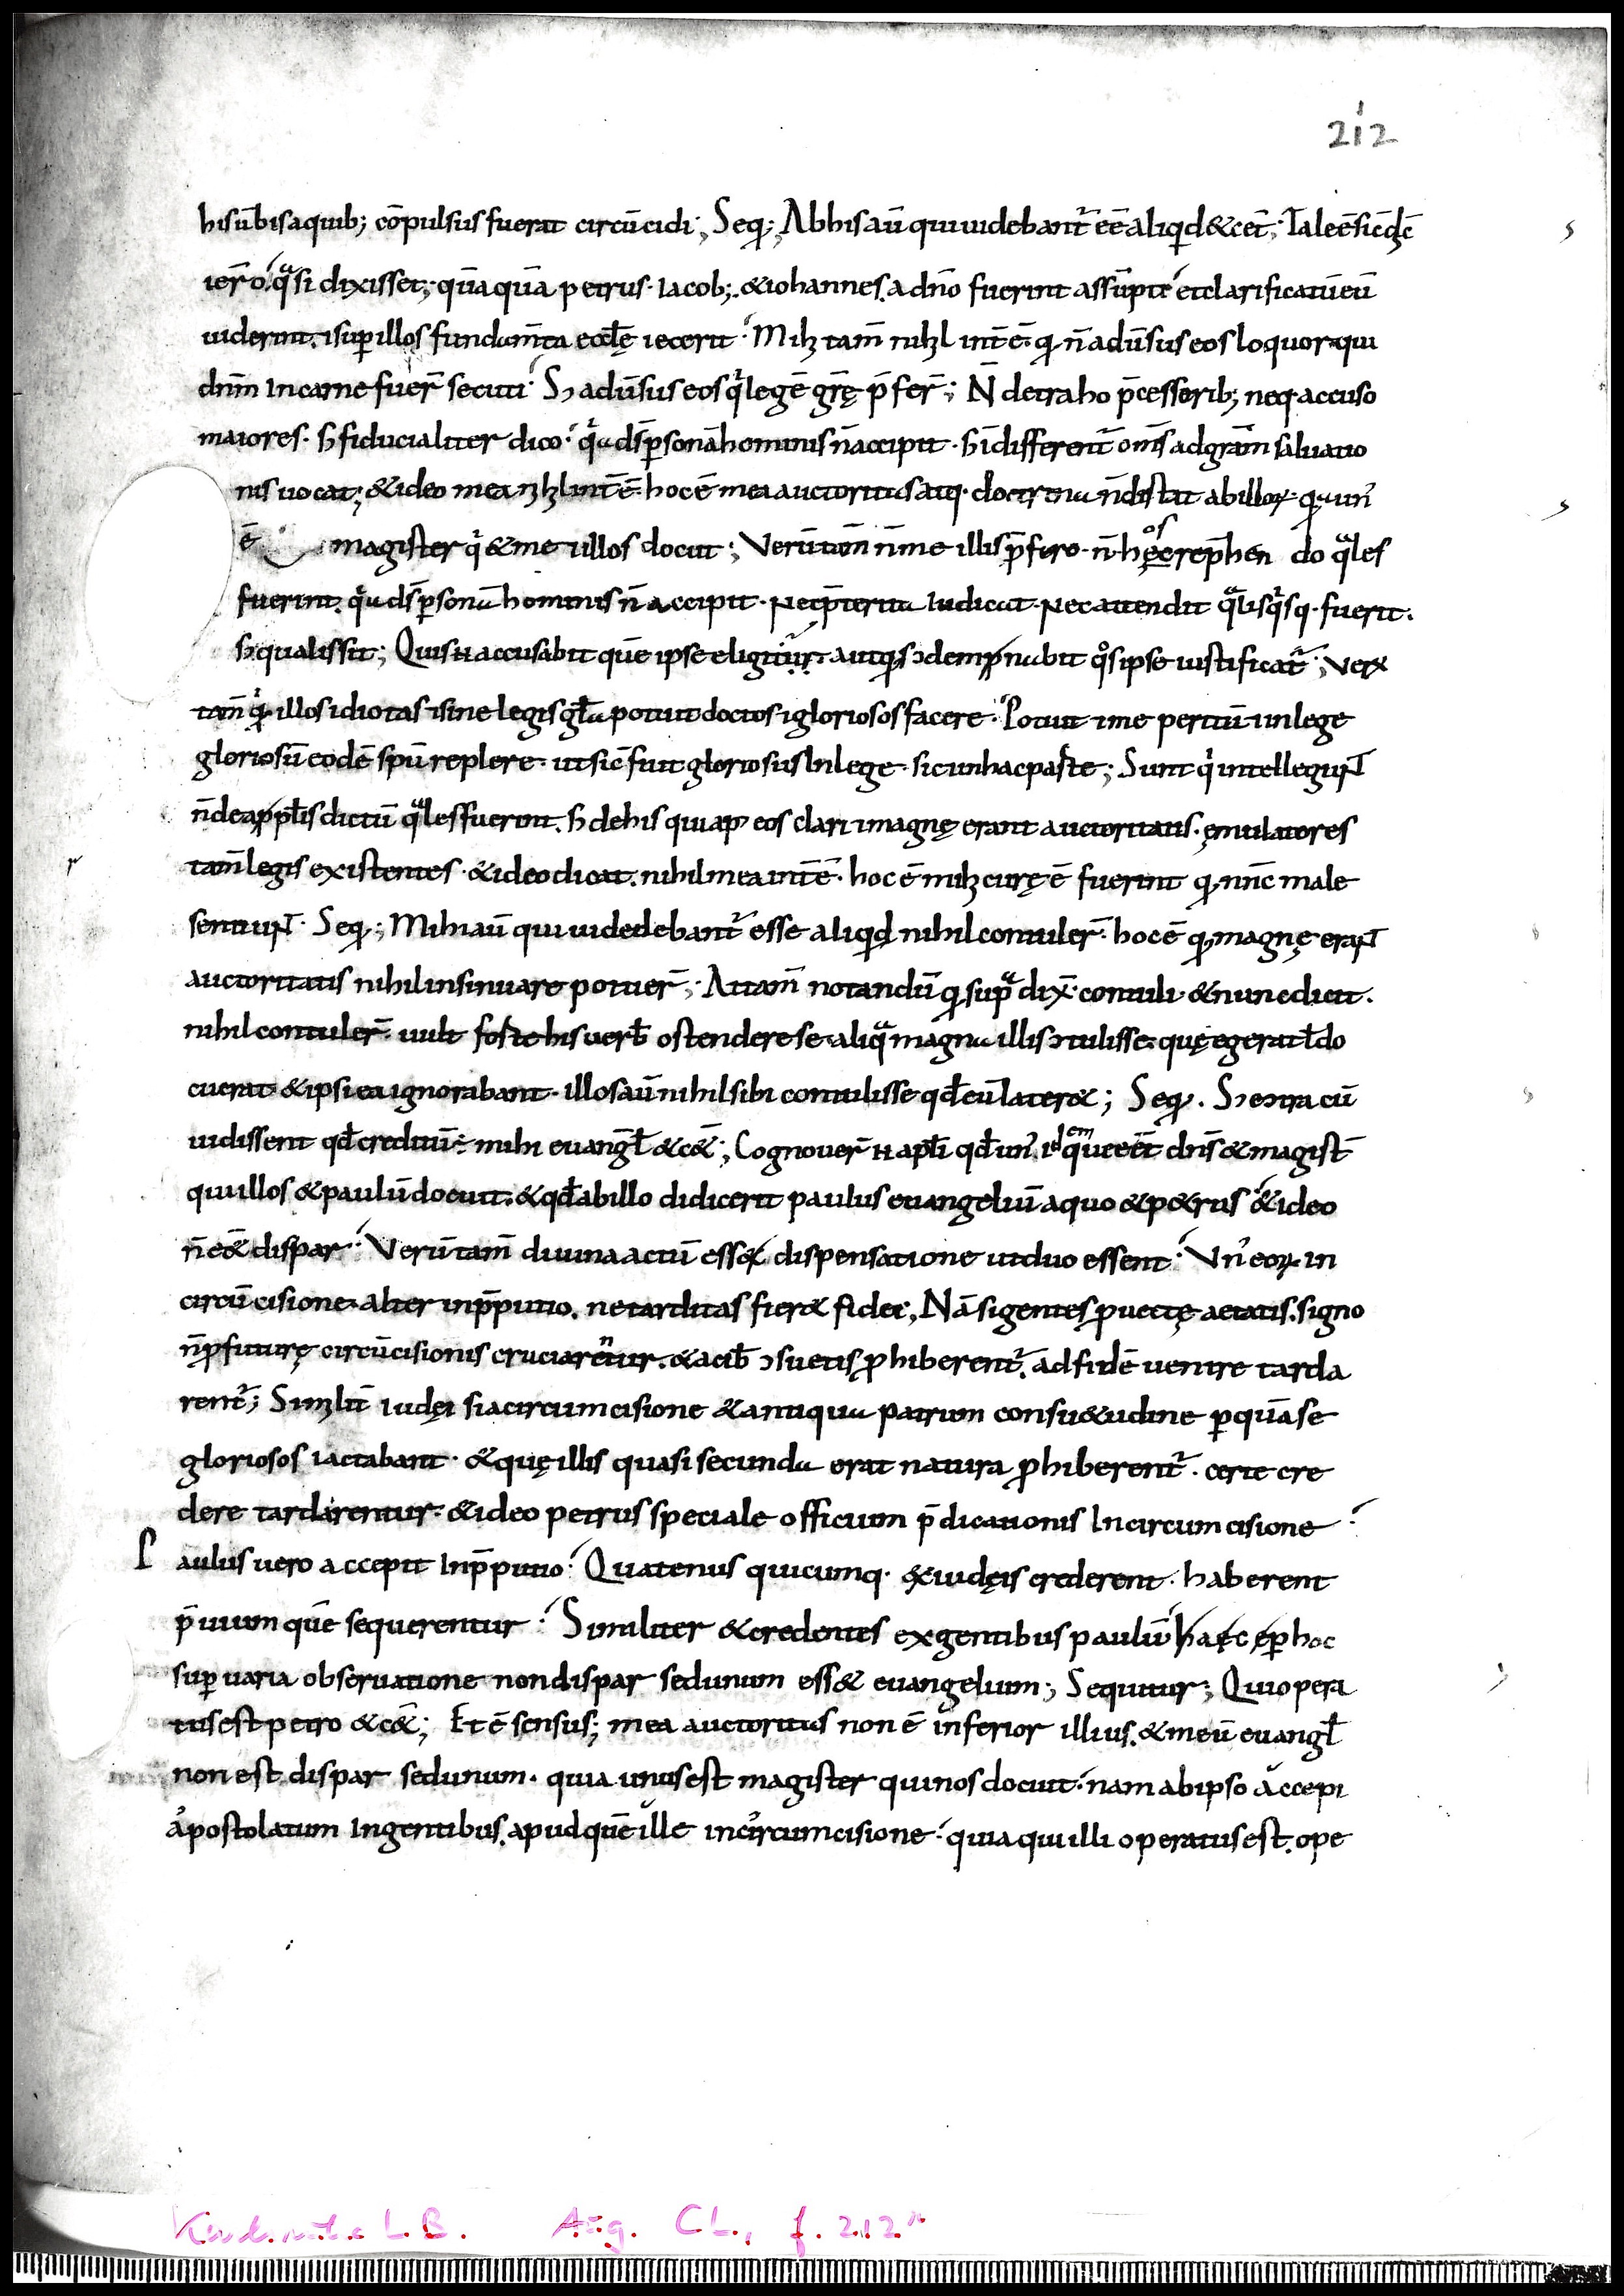 212
hisūbis aquib; cōpulsus fuerat circūcidi; Seq; Abhis aū qui uidebant̄ eē aliqid & cet̄; Tale ē sic dc̄
ier̄o. qͣsi dixisset; quāquā petrus. Iacob; & iohannes. a dn̄o fuerint assūpti et clarificatū eū
uiderint. ⁊ sup illos fundam̄ta eccl̄ę iecerit. Mihi tam̄ nihil int̄ ē. qd n̄ adūsus eos loquor. qui
dn̄m In carne fuer̄ secuti. S; adūsus eos qͥ legē gr̄ę p̄fer̄; N̄ detraho p̄cessorib; neq. accuso
maiores. s; fiducialiter dico. qͥa ds̄ psonā hominis n̄ accipit. s; īdifferent̄ om̄s ad grām saluatio
nis uocat; & ideo mea nihil int̄ ē. hoc ē mea auctoritas atq. doctrina n̄ distat ab illoꝝ. qa un'
ē magister qͥ & me ⁊ illos docuit; Verūtam̄ n̄ me illis p̄fero. n̄ hęc rep̄hen do qͣles
os
fuerint. qͥa ds̄ psonā hominis n̄ accipit. Nec p̄terita Iudicat. Nec attendit qͣlis qͥsq. fuerit.
s; qualis sit; Quis N accusabit quē ipse eligitur. aut qis ↄdempnabit qͦs ipse iustificat̄; Veꝝ
tam̄ qͥ illos idiotas ⁊ sine legis gl̄a potuit doctos ⁊ gloriosos facere. Potuit ⁊ me peritū in lege
gloriosū eodē spū replere. ut sic̄ fuit gloriosus In lege. sic in hac paste; Sunt qͥ intellegunt
n̄ de appl̄is dictū qͣles fuerint. s; de his qui ap' eos clari ⁊ magnę erant auctoritatis. ęmulatores
tam̄ legis existentes. & ideo dicat. nihil mea int̄ ē. hoc ē mihi curę ē fuerint qd nūc male
sentiunt. Seq; Mihi aū qui uidedebant̄ esse aliqid nihil contuler̄. hoc ē qd magnę erant
auctoritatis nihil insinuare potuer̄; Attam̄ notandū qd supͣ dix̄. contuli. & nunc dicit.
nihil contuler̄. uult foste his uerb̄ ostendere se aliqͣ magna illis ↄtulisse. quę egerat ł do
cuerat & ipsi ea ignorabant. illos aū nihil sibi contulisse qd̄ eū later&; Seq. S; e ↄtra cū
uidissent qd̄ creditū ÷ mihi euangl̄ & c&̄; Cognouer̄ N apl̄i qd̄ un'. idem qͥ ueēt dn̄s & magist̄
qui illos & paulū docuit. & qd̄ ab illo didicerit paulus euangeliū a quo & p&rus & ideo
n̄ e& dispar. Verūtam̄ diuina actū ess& dispensatione ut duo essent. Vn' eoꝝ. in
circūcisione. alter in p̄putio. ne tarditas fier& fidei; Nā si gentes puectę aetatis. signo
n̄ pfuturę circūcisionis cruciarentur. & a cib̄ ↄsuetis phiberent̄. ad fidē uenire tarda
rent̄; Similit̄ iudęi si a circumcisione & antiqua patrum consu&udine p quā se
gloriosos iactabant. & quę illis quasi secunda erat natura phiberent̄. certe cre
dere tardarentur. & ideo petrus speciale officium p̄dicationis In circumcisione
Paulus uero accepit In p̄putio. Quatenus quicumq. ex iudęis crederent. haberent
p̄uium quē sequerentur. Similiter & credentes ex gentibus paulū hęc ę p hoc
sup uaria obseruatione non dispar sed unum ess& euangelium; Sequitur; Qui opera
tus est petro & c&̄; Et ē sensus; mea auctoritas non ē inferior illius. & meū euangl̄
non est dispar sed unum. quia unus est magister qui nos docuit. nam ab ipso accepi
apostolatum In gentibus. apud quē ille in circumcisione. quia qui illi operatus est. ope
L.B. Aug. CL, f. 212r